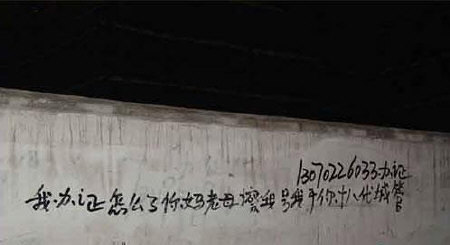 13070226033办证
我办证怎么了你奶老母擦我号我干你十八代城管